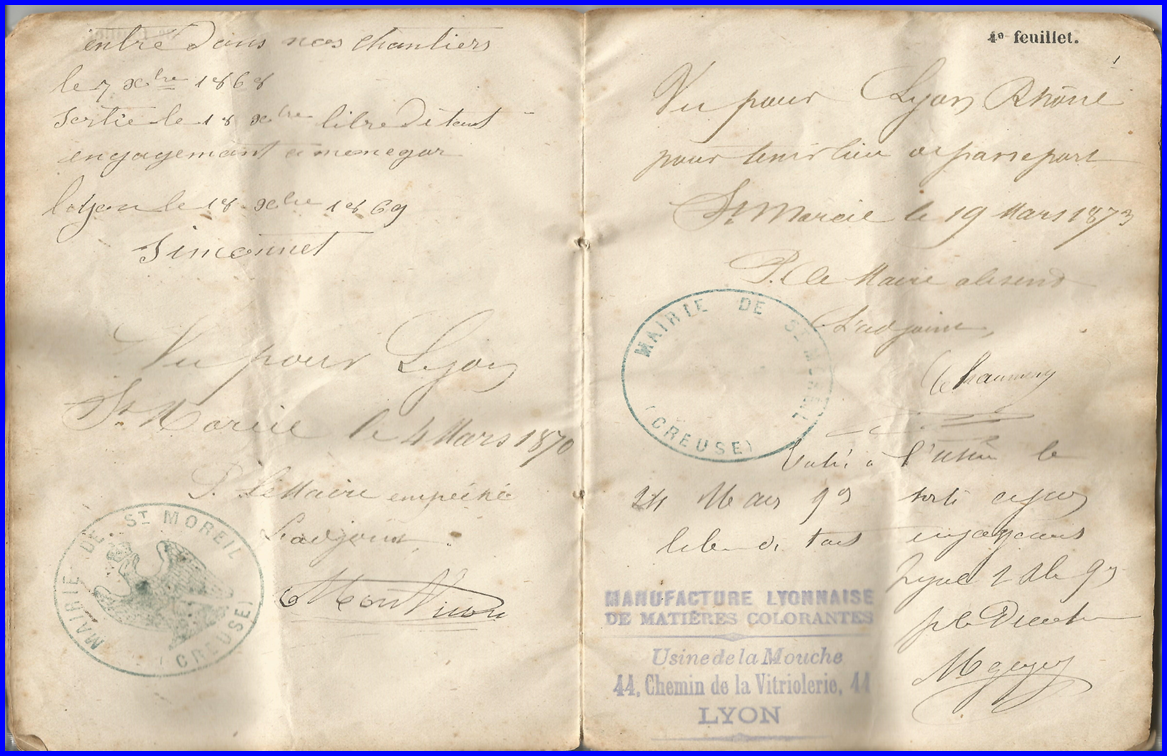 entré dans nos chantiers
le 7 xbre 1868
Sortie le 18 xbre libre de tout
engagement
le 18 xbre 1869
Simonnet
Vu pour Lyon
St Moreil le 4 Mars 1870
P. Le Maire empêché
L'adjoint
MAIRIE DE ST MOREIL
(CREUSE)
4e feuillet.
1
Vu pour Lyon Rhône
pour tenir lieu de passeport
St Moreil le 19 Mars 1873
P. le Maire absent
L'adjoint,
MAIRIE DE ST MOREIL
(CREUSE)
Entré à l'usine le
24 Mars 9 sorti ce jour
libre de tout engagement
Lyon 1
p le Directeur
MANUFACTURE LYONNAISE
DE MATIÈRES COLORANTES
Usine de la Mouche
44, Chemin de la Vitriolerie, 44
LYON